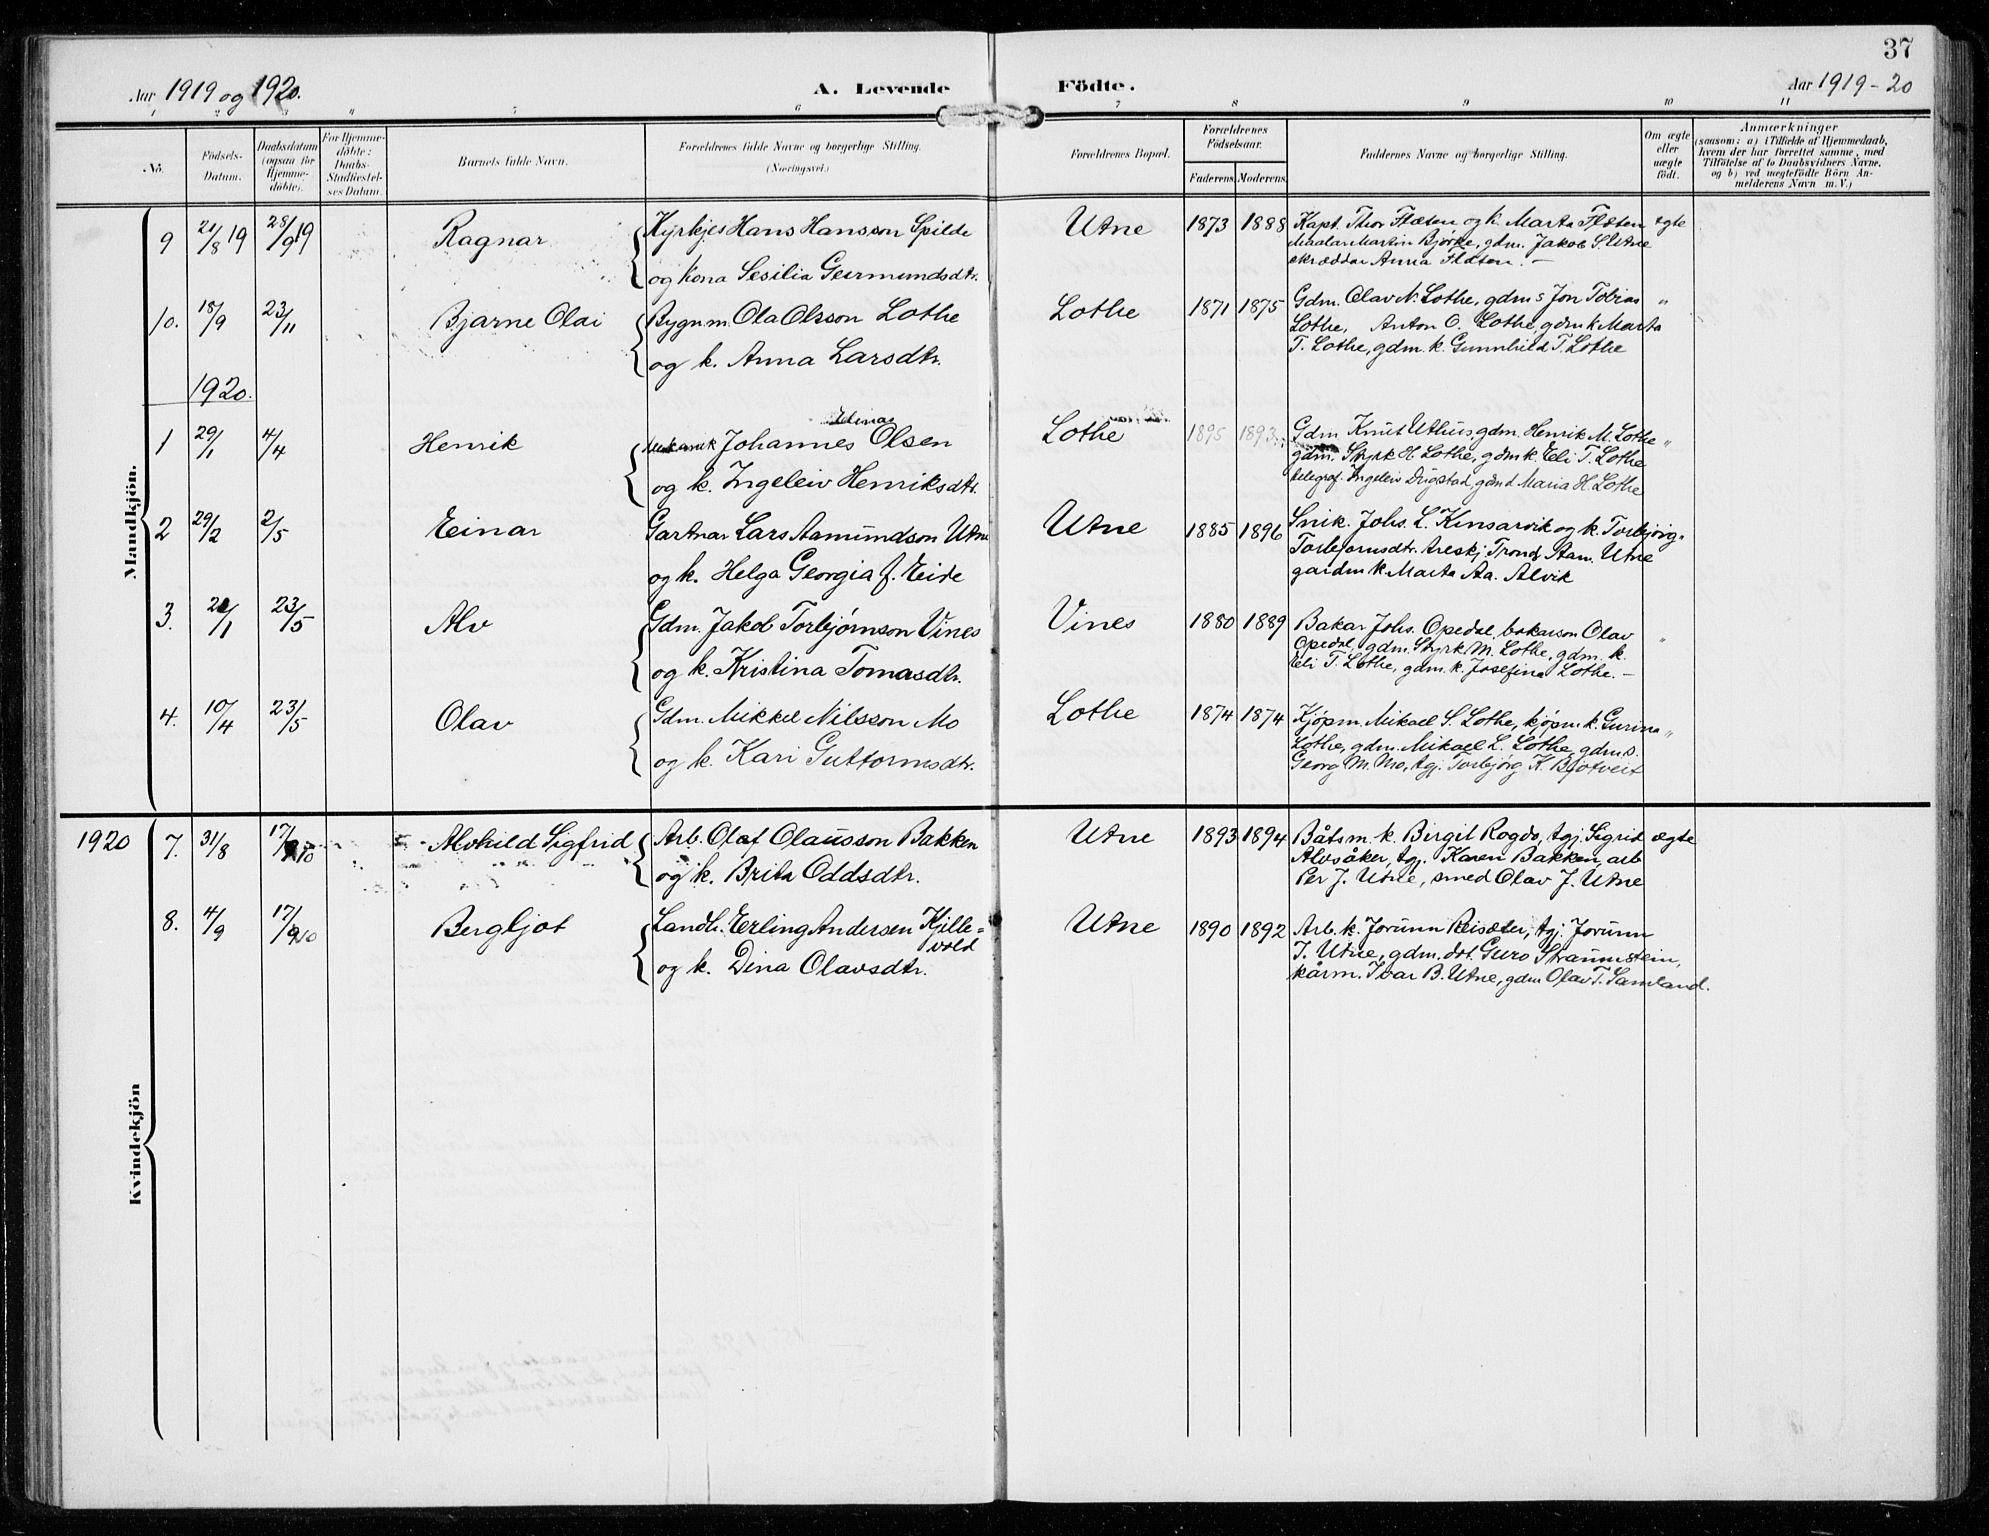 37
Aar 1919 og 1920.
A. Levende
Födte.
Aar 1919-20
1 2 3 4 5 6 7 8 9 10 11
No.
Födsels-
Datum.
Daabsdatum
(ogsaa for
Hjemme-
döbte).
For Hjemme-
döbte:
Daabs-
Stadfæstel-
ses Datum.
Barnets fulde Navn.
Forældrenes fulde Navne og borgerlige Stilling.
(Næringsvei.)
Forældrenes Bopæl.
Forældrenes
Födselsaar.
Faderens. Moderens.
Faddernes Navne og borgerlige Stilling.
Om ægte
eller
uægte
födt.
Anmærkninger
(saasom: a) i Tilfælde af Hjemmedaab,
hvem der har forrettet samme, med
Tilföielse af to Daabsvidners Navne,
og b) ved uægtefödte Börn An-
melderens Navn m. V.)
Mandkjön.
9 21/8 19 28/9 19 Ragnar
Kyrkjes Hans Hansson Spilde
og kona Sesilia Geirmundsdtr.
Utne 1873 1888
Kapt. Thor Flæten og k. Marta Flæten
Maalar Martin Bjørke, gdm. Jakob S. Utne
skræddar Anna Flæten. —
ægte
10. 18/9 23/11 Bjarne Olai
Bygn.m. Ola Olsson Lothe
og k. Anna Larsdtr.
Lothe 1871 1875
Gdm. Olav N. Lothe, gdms Jon Tobias
Lothe, Anton O. Lothe, gdm k Marta
T. Lothe, gdm. k. Gunnhild T. Lothe
"
1920.
1 29/1 4/4 Henrik
Johannes Olsen
og k. Ingeleiv Henriksdtr.
Lothe 1895 1893
Gdm Knut Uthus, gdm. Henrik M. Lothe
gdm. Styrk H. Lothe, gdm k Eeli T. Lothe
telegraf. Ingeleiv Drigstad, gdm d Maria H. Lothe
"
2 29/2 2/5 Einar
Gartnar Lars Aamundson Utne
og k. Helga Georgia f. Eide
Utne 1885 1896
Snik. Johs. L. Kinsarvik og k. Torbjørg
Torbjørnsdtr. Treskj Trond Aam. Utne
gardm k Marta Aa. Alvik
3. 21/1 23/5 Alv
Gdm. Jakob Torbjørnson Vines
og k. Kristina Tomasdtr.
Vines 1880 1889
Bakar Johs. Opedal, bakarson Olav
Opedal, gdm. Styrk M. Lothe, gdm. k.
Eeli T. Lothe, gdm. k. Josefina Lothe. —
"
4. 10/4 23/5 Olav
Gdm. Mikkel Nilsson Mo
og k. Kari Guttormsdtr.
Lothe 1874 1874
Kjøpm. Mikael S. Lothe, kjøpm. k. Gurina
Lothe, gdm. Mikael L. Lothe, gdm s.
Georg M. Mo, tgj. Torbjørg K. Bjotveit
"
Kvindekjön
1920 7. 31/8 17/10 Alvhild Sigfrid
Arb. Olaf Olausson Bakken
og k. Brita Oddsdtr.
Utne 1893 1894
Båtsm. k. Birgit Rogdo, tgj. Sigrid
Alvsåker, tgj. Karen Bakken, arb
Per J. Utne, smed Olav J. Utne
ægte
8. 4/9 17/10 Bergljot
Landh. Erling Andersen Kjille=
vold
og k. Dina Olavsdtr.
Utne 1890 1892
Arb. k. Jorunn Reisæter, tgj. Jorunn
T. Utne, gdm. dot. Guro Straumstein,
kårm. Ivar B. Utne, gdm Olav T. Samland.